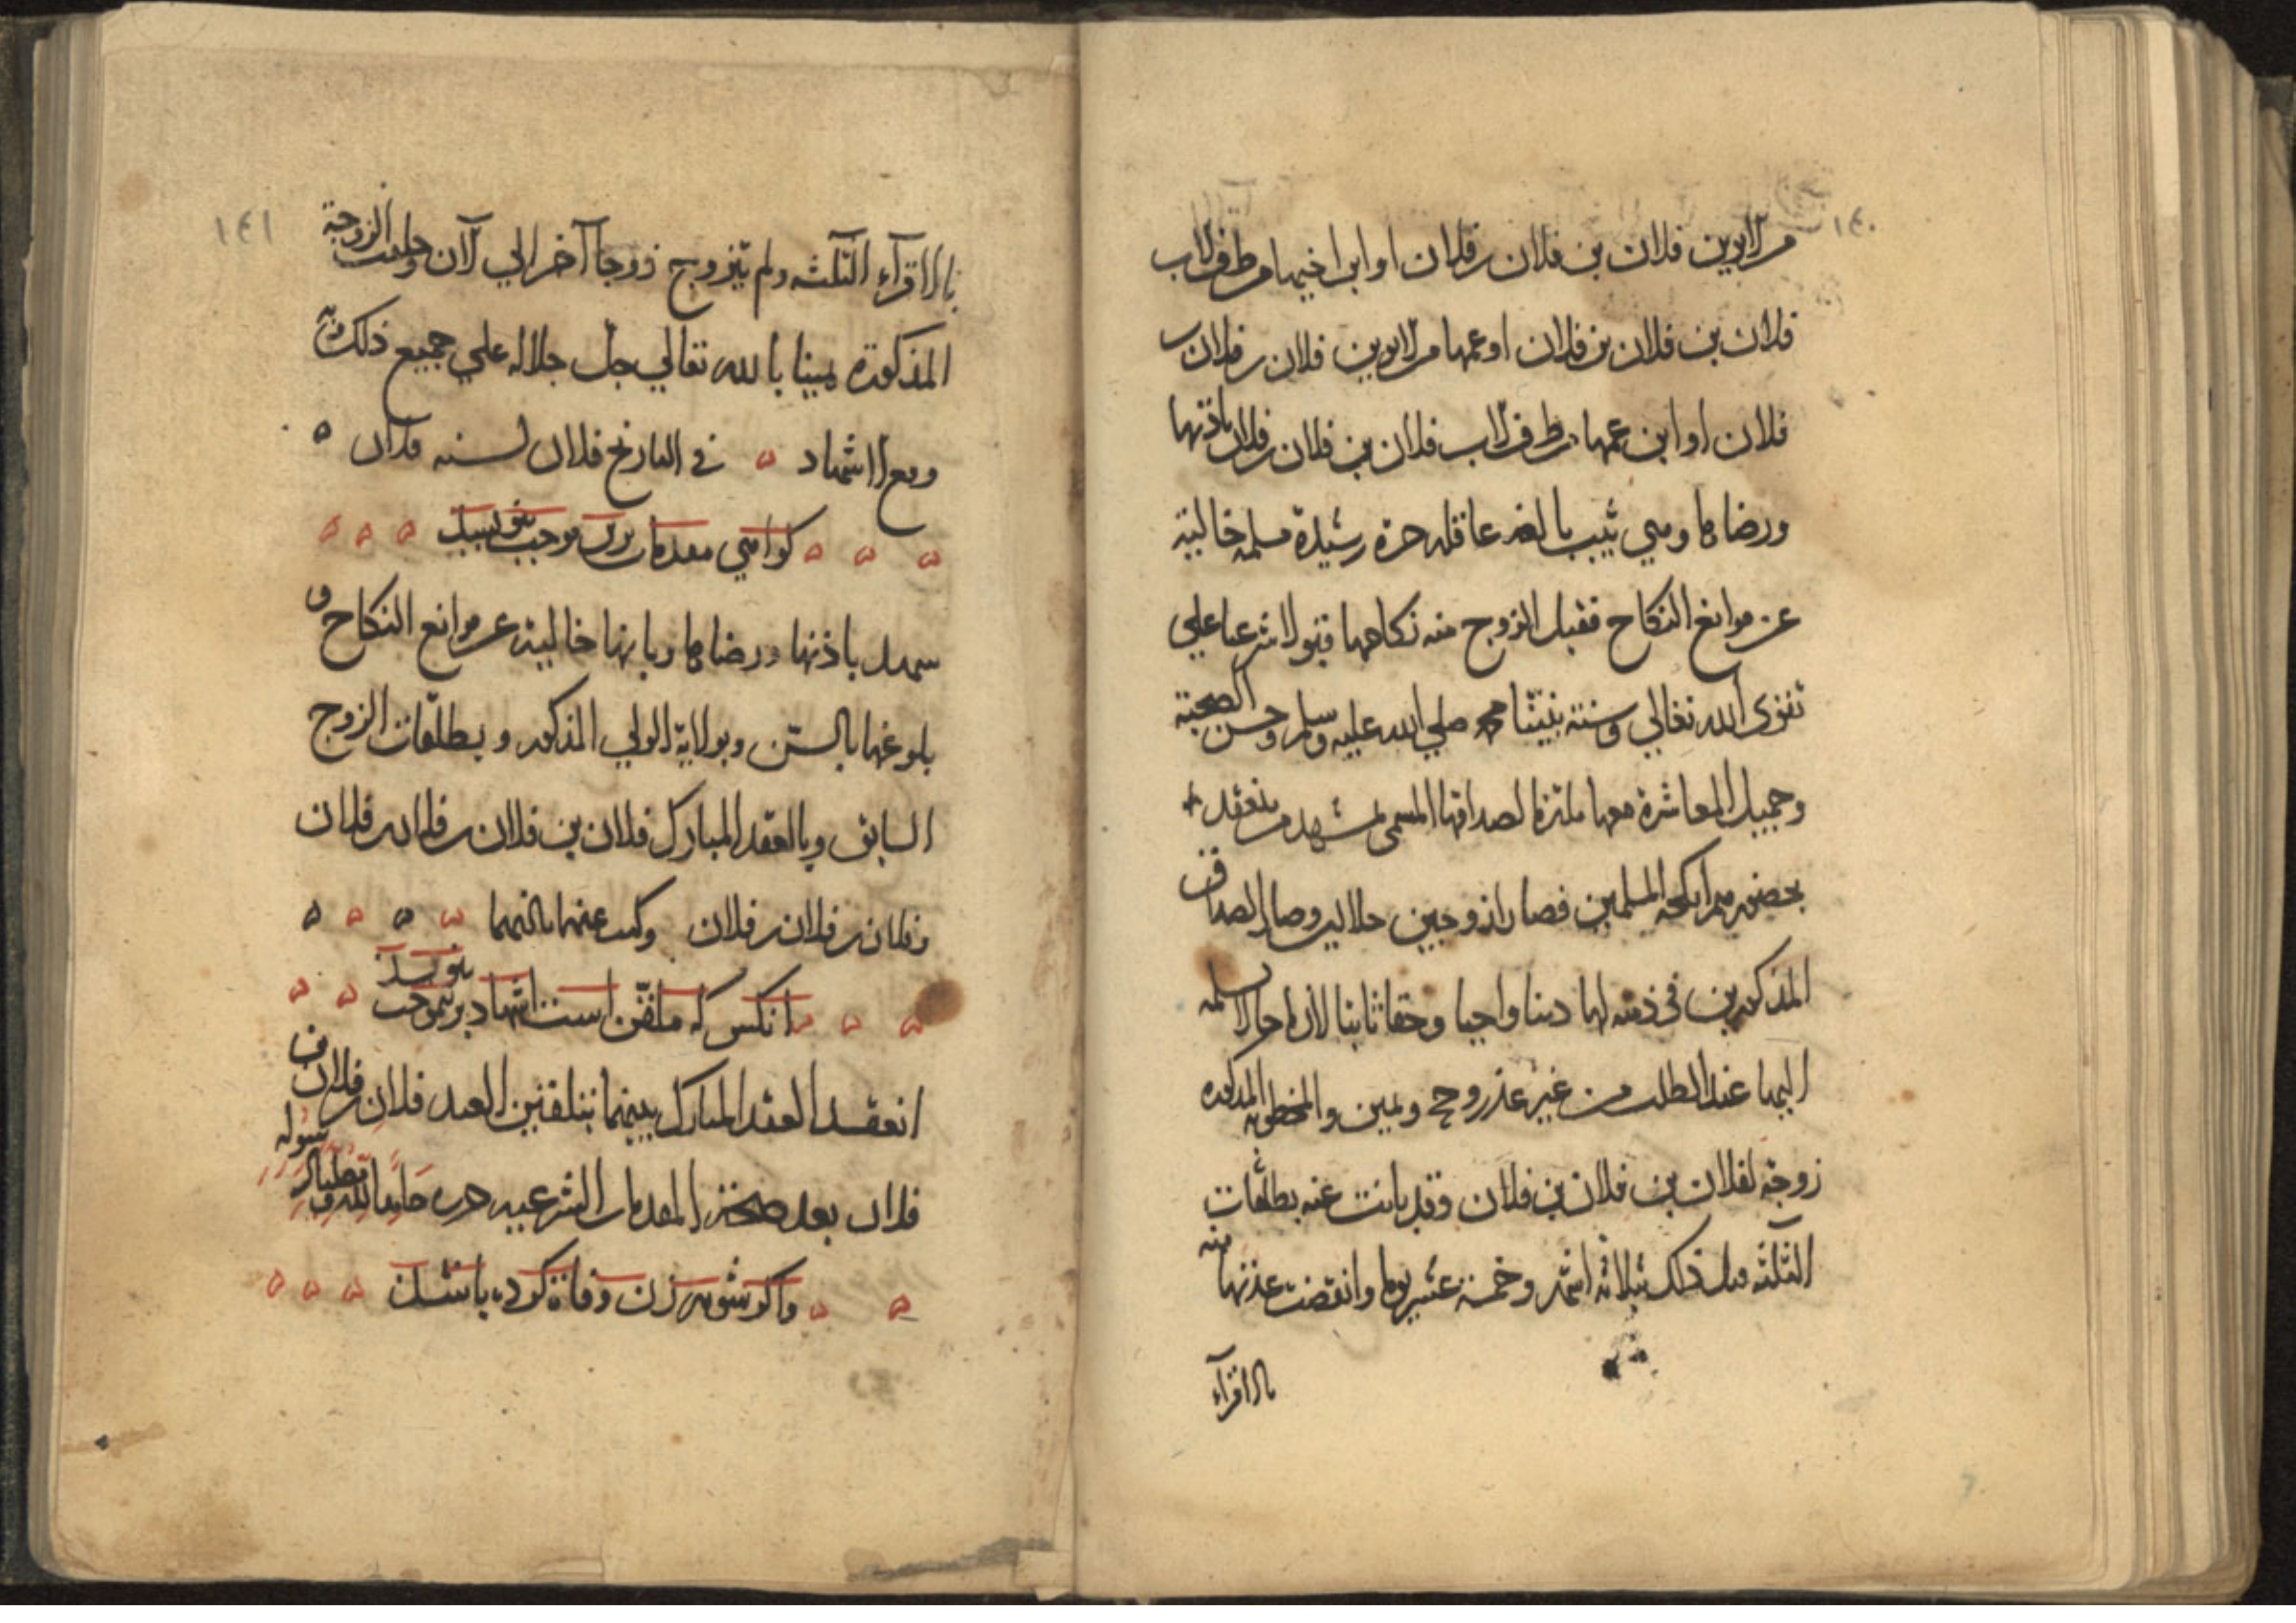 ١٤٠
من الابوين فلان بن فلان بن فلان او ابن اخيها من طرف الاب
فلان بن فلان بن فلان او عمها من الابوين فلان بن فلان بن
فلان او ابن عمها من طرف الاب فلان بن فلان بن فلان باذنها
ورضاها وهي ثيب بالغة عاقله حرة رشيدة مسلمه خالية
عن موانع النكاح فقبل الزوج منه نكاحها قبولا شرعيا علي
تقوى الله تعالي وسنة نبينا محمد صلي الله عليه وسلم وحسن الصحبة
وجميل المعاشرة معها ملتزما لصداقها المسمى بمشهد من ينعقد
بحضورهم انكحة المسلمين فصارا زوجين حلالين وصار الصداق
المذكورين في ذمته لها دينا واجبا وحقا ثابتا لازما حالا
اليها عند الطلب من غير عذر وحجج ويمين والمخطوبه المذكوره
زوجة لفلان بن فلان بن فلان وقد بانت عنه بطلقات
الثلثه قبل ذلك بثلاثة اشهر وخمسة عشر يوما وانقضت عدتها منه
بالاقرآء
١٤١
بالاقرآء الثلثه ولم يتزوج زوجا آخر الي الآن وحلفت الزوجة
المذكورة يمينا بالله تعالي جل جلاله علي جميع ذلك
وقع الاشهاد في التاريخ فلان لسنه فلان
كواهي مقدمات برين موجب
باذنها ورضاها وبانها خالية عن موانع النكاح و
بلوغها بالسن وبولاية الولي المذكور وبطلقات الزوج
السابق وبالعقد المبارك فلان بن فلان بن فلان بن فلان
وفلان بن فلان بن فلان وكتب عنهما بامرهما
انكس كه ملقن است اشهاد برين موجب بنويسد
انعقد العقد المبارك بينهما بتلقين العبد فلان بن فلان بن
فلان بعد صحة المقدمات الشرعيه
واكر شوهر زن وفاة كرده باشد